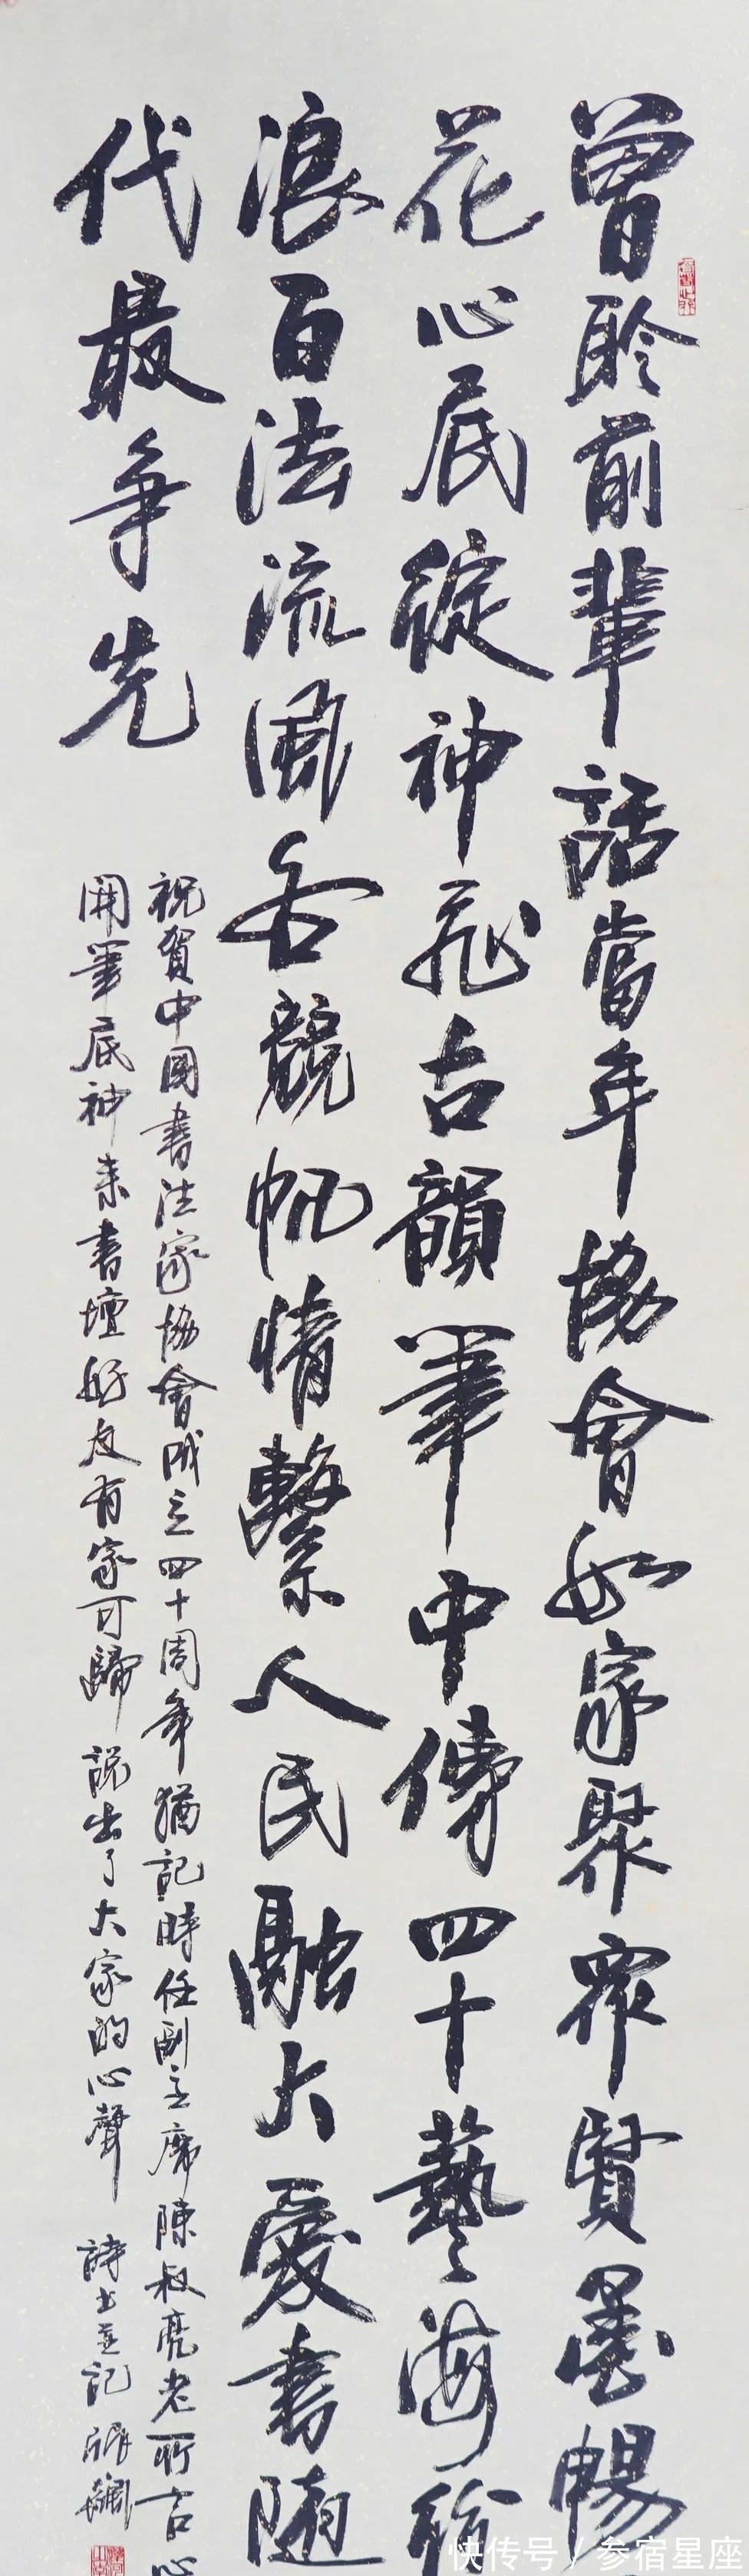 曾聆前輩話當年協會如家聚眾賢墨暢
花心底綻神飛古韻筆中傳四十藝海
浪百法流風各競帆情繫人民融大愛書隨
代最爭先
祝賀中國書法家協會成立四十周年猶記時任副主席陳叔亮老所言心
開筆底神來書壇好友有家可歸說出了大家的心聲 詩書並記
快传号/参宿星座